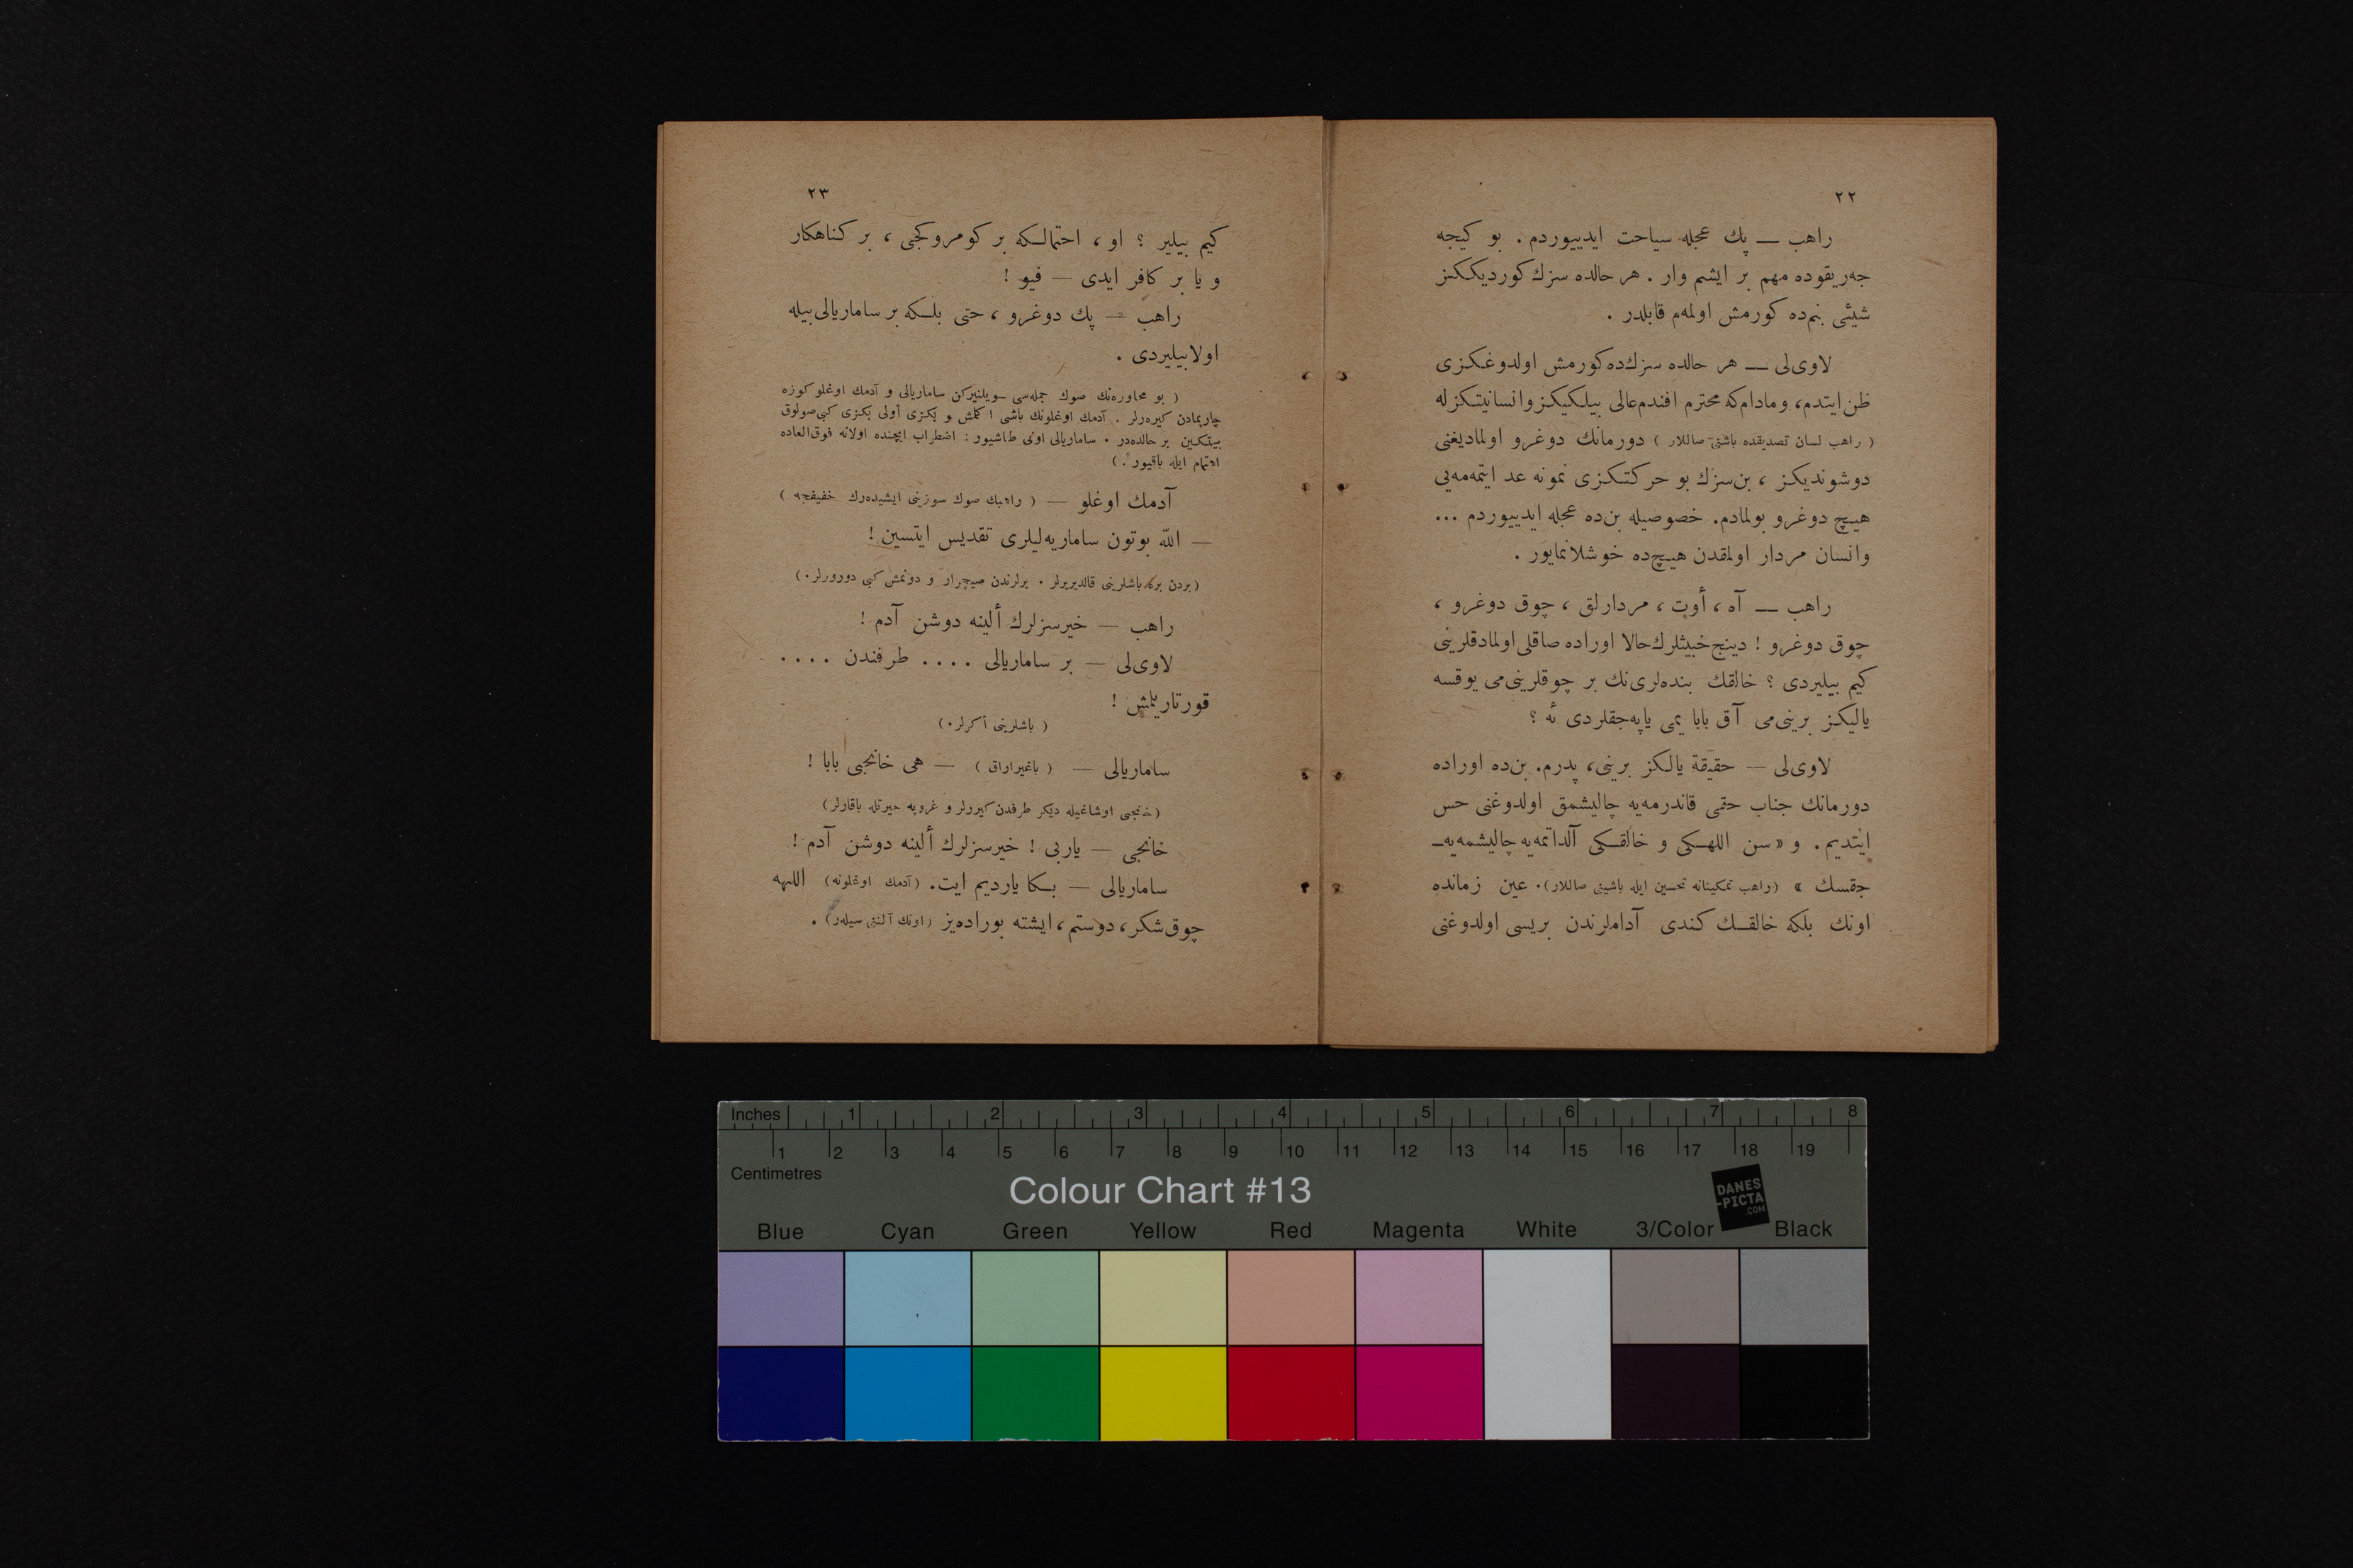 ٢٢
راهب — پك عجله سیاحت ایدییوردم . بو كیجه
جه‌ریقوده مهم بر ایشم وار . هر حالده سزك كوردیككز
شیئی بنم‌ده كورمش اولمه‌م قابلدر .
لاوی‌لی — هر حالده سزك‌ده كورمش اولدوغكزی
ظن ایتدم، و مادام‌كه محترم افندم‌عالی بیلكیكز و انسانیتكزله
( راهب لسان تصدیقده باشنی صاللار ) دورمانك دوغرو اولمادیغنی
دوشوندیكز ، بن‌سزك بو حركتكزی نمونه عد ایتمه‌مه‌یی
هیچ دوغرو بولمادم. خصوصیله بن‌ده عجله ایدییوردم ...
وانسان مردار اولمقدن هیچ‌ده خوشلانمایور .
راهب — آه ، أوت ، مردارلق ، چوق دوغرو ،
چوق دوغرو ! دینج خبیثلرك حالا اوراده صاقلی اولمادقلرینی
كیم بیلیردی ؟ خالقك بنده‌لری‌نك بر چوقلرینی‌می یوقسه
یالیكز برینی‌می آق بابا یمی یاپه‌جقلردی ئه ؟
لاوی‌لی — حقیقة یالكز برینی، پدرم. بن‌ده اوراده
دورمانك جناب حقی قاندرمه‌یه چالیشمق اولدوغنی حس
ایتدیم . و « سن اللهكی و خالقكی آلداتمه‌یه چالیشمه‌یه‌ـ
جقسك » (راهب تمكینانه تحسین ایله باشینی صاللار). عین زمانده
اونك بلكه خالقك كندی آداملرندن بریسی اولدوغنی
٢٣
كیم بیلیر ؟ او ، احتمالكه بر كومروكجی ، بر كناهكار
و یا بر كافر ایدی — فیو !
راهب — پك دوغرو ، حتی بلكه بر سامارىالی بیله
اولابیلیردی .
( بو محاوره‌نك صوك جمله‌سی سویلنیركن سامارىالی و آدمك اوغلو كوزه
چارپمادن كیره‌رلر . آدمك اوغلونك باشی اكلمش و بكزی أولی بكزی كبی صولوق
بیتكین بر حالده‌در . سامارىالی اونی طاشیور : اضطراب ایچنده اولانه فوق‌العاده
اهتمام ایله باقیور .)
آدمك اوغلو — ( راهبك صوك سوزینی ایشیده‌رك خفیفجه )
— الله بوتون ساماریه‌لیلری تقدیس ایتسین !
(بردن بره باشلرینی قالدیریرلر . یرلرندن صیچرار و دونمش كبی دورورلر.)
راهب — خیرسزلرك ألینه دوشن آدم !
لاوی‌لی — بر سامارىالی .... طرفندن ....
قورتاریلمش !
( باشلرینی أكرلر.)
سامارىالی — ( باغیراراق ) — هی خانجی بابا !
(خانجی اوشاغیله دیكر طرفدن كیررلر و غروپه حیرتله باقارلر)
خانجی — یاربی ! خیرسزلرك ألینه دوشن آدم !
سامارىالی — بكا یاردیم ایت. (آدمك اوغلونه) اللهه
چوق شكر، دوستم، ایشته بوراده‌یز (اونك آلنی سیلەر) .
Inches 1 2 3 4 5 6 7 8
1 2 3 4 5 6 7 8 9 10 11 12 13 14 15 16 17 18 19
Centimetres
Colour Chart #13
DANES
-PICTA
.COM
Blue Cyan Green Yellow Red Magenta White 3/Color Black